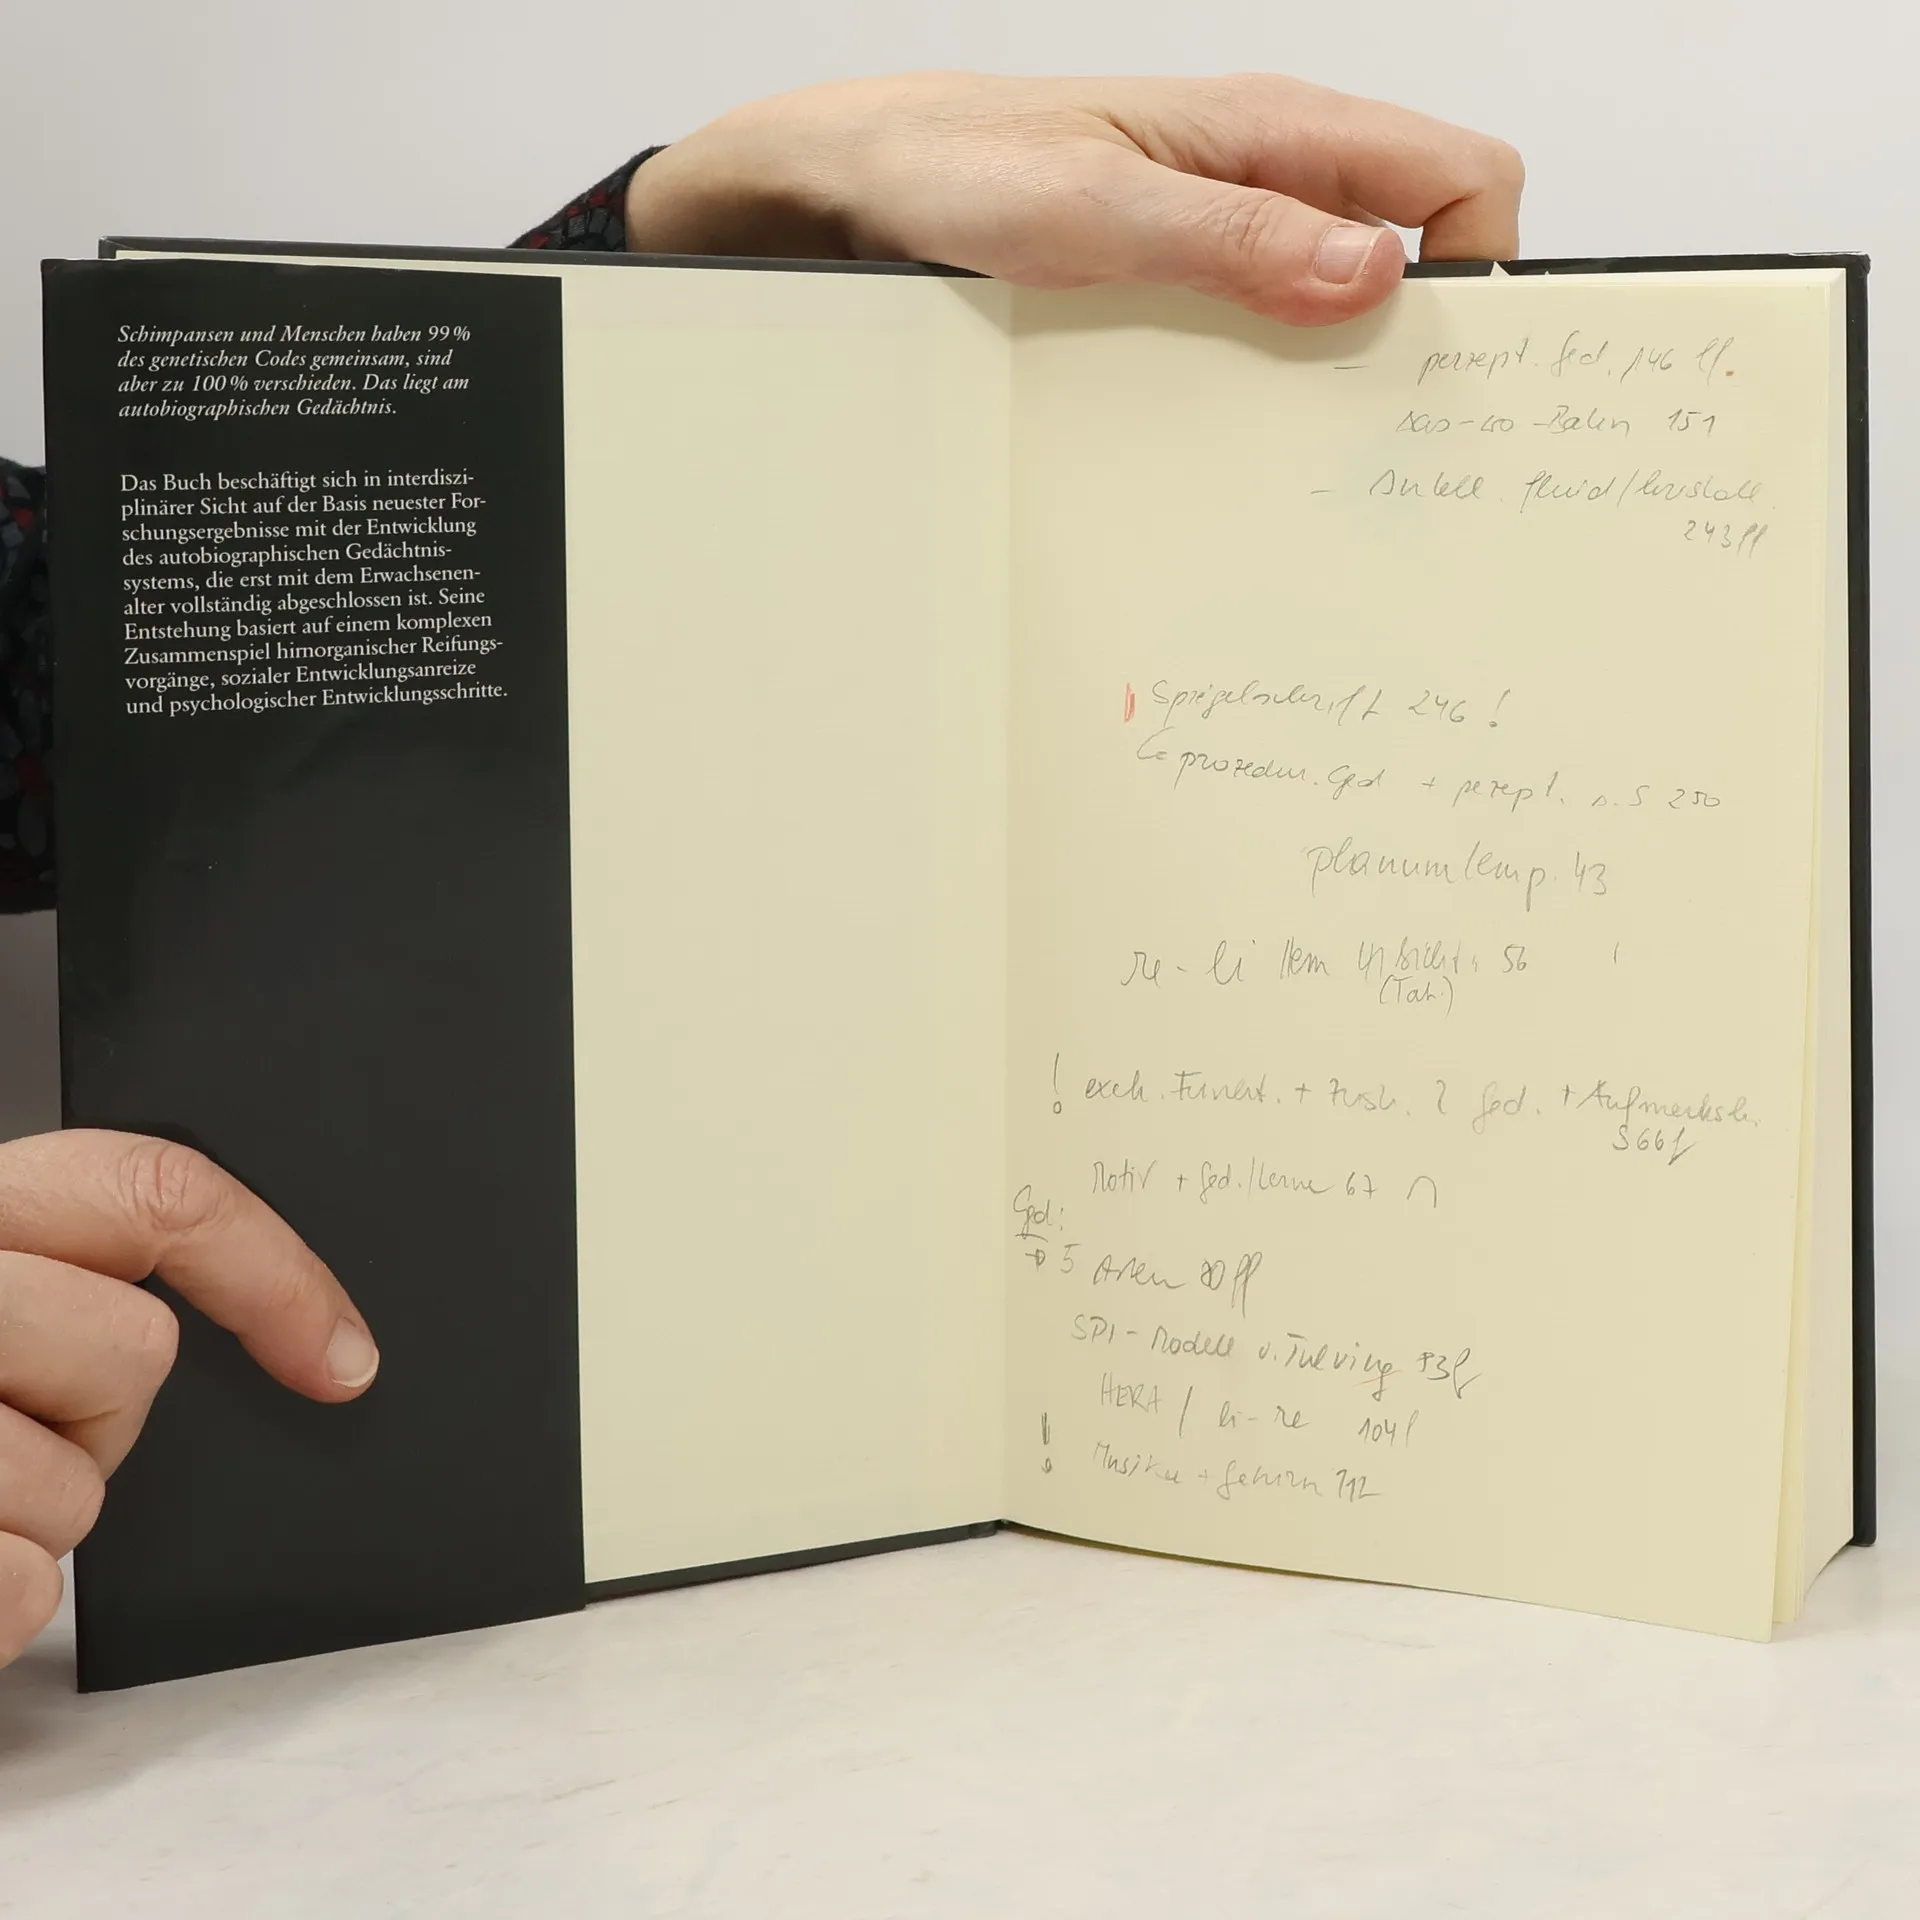 Schimpansen und Menschen haben 99 %
des genetischen Codes gemeinsam, sind
aber zu 100 % verschieden. Das liegt am
autobiographischen Gedächtnis.
Das Buch beschäftigt sich in interdiszi-
plinärer Sicht auf der Basis neuester For-
schungsergebnisse mit der Entwicklung
des autobiographischen Gedächtnis-
systems, die erst mit dem Erwachsenen-
alter vollständig abgeschlossen ist. Seine
Entstehung basiert auf einem komplexen
Zusammenspiel hirnorganischer Reifungs-
vorgänge, sozialer Entwicklungsanreize
und psychologischer Entwicklungsschritte.
– perzept. Ged. 146 ff.
was-wo-Bahn 151
– fluid/kristall.
243 ff
Spiegelschrift 246 !
prozedur. Ged + perzept. s. S 250
planum temp. 43
re - li 56
(Tab.)
! exek. Funkt. + Zush. Ged. + Aufmerksk.
S 66 f
Motiv + Ged./Lerne 67
Ged:
→ 5 Arten 80 ff
SPI-Modell v. Tulving 93 f
HERA / li-re 104 f
! Musiker + Gehirn 112